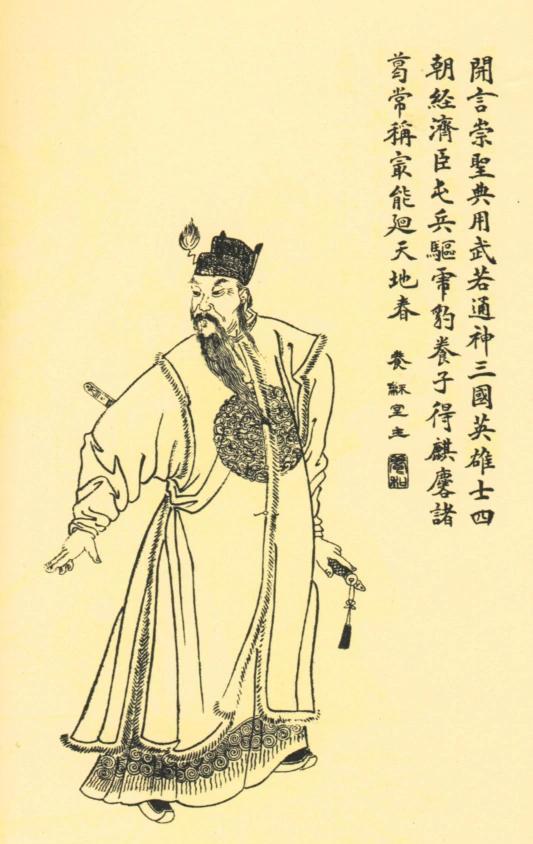 開言崇聖典用武若通神三國英雄士四
朝経濟臣屯兵驅乕豹養子得麒麐諸
葛常稱冣能廻天地春
養室主